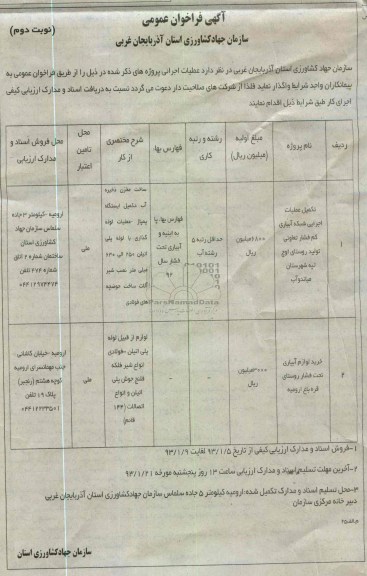 آگهی فراخوان عمومی
(نوبت دوم)
سازمان جهادکشاورزی استان آذربایجان غربی
سازمان جهاد کشاورزی استان آذربایجان غربی در نظر دارد عملیات اجرائی پروژه های ذکر شده در ذیل را از طریق فراخوان عمومی به
پیمانکاران واجد شرایط واگذار نماید فلذا از شرکت های صلاحیت دار دعوت می گردد نسبت به دریافت اسناد و مدارک ارزیابی کیفی
اجرای کار طبق شرایط ذیل اقدام نمایند
ردیف
نام پروژه
مبلغ اولیه (میلیون ریال)
رشته و رتبه کاری
فهارس بها
شرح مختصری از کار
محل تامین اعتبار
محل فروش اسناد و مدارک ارزیابی
۱
تکمیل عملیات
اجرایی شبکه آبیاری
کم فشار تعاونی
تولید روستای اوچ
تپه شهرستان
میاندوآب
میلیون
ریال
حداقل رتبه ۵
رشته آب
فهارس بها پا
به ابنیه و
آبیاری تحت
فشار سال
۹۲
ساخت مخزن ذخیره
آب تکمیل ایستگاه
پمپاژ -عملیات لوله
گذاری با لوله پلی
اتیلن ۲۵۰ الی ۶۳۰
میلی متر نصب شیر
آلات ساخت حوضچه
های فولادی
ملی
ارومیه -کیلومتر ۳ جاده
سلماس سازمان جهاد
کشاورزی استان
ساختمان شماره ۲ اتاق
شماره ۲۷۴ تلفن
۲
خرید لوازم آبیاری
تحت فشار روستای
قره باغ ارومیه
میلیون
ریال
-
-
لوازم از قبیل لوله
پلی اتیلن -فولادی
انواع شیر فلکه
فلنج جوش پلی
اتیلن و انواع
اتصالات (۱۴۴
قلم)
ملی
ارومیه -خیابان کاشانی -
جنب مهمانسرای ارومیه
کوچه هشتم (رنجبر)
پلاک ۱۹ تلفن
ParsNamadData
۱-فروش اسناد و مدارک ارزیابی کیفی از تاریخ ۹۳/۱/۵ لغایت ۹۳/۱/۹
۲-آخرین مهلت تسلیم اسناد و مدارک ارزیابی ساعت ۱۳ روز پنجشنبه مورخه ۹۳/۱/۲۱
۳-محل تسلیم اسناد و مدارک تکمیل شده:ارومیه کیلومتر ۵ جاده سلماس سازمان جهادکشاورزی استان آذربایجان غربی
دبیر خانه مرکزی سازمان
سازمان جهادکشاورزی استان